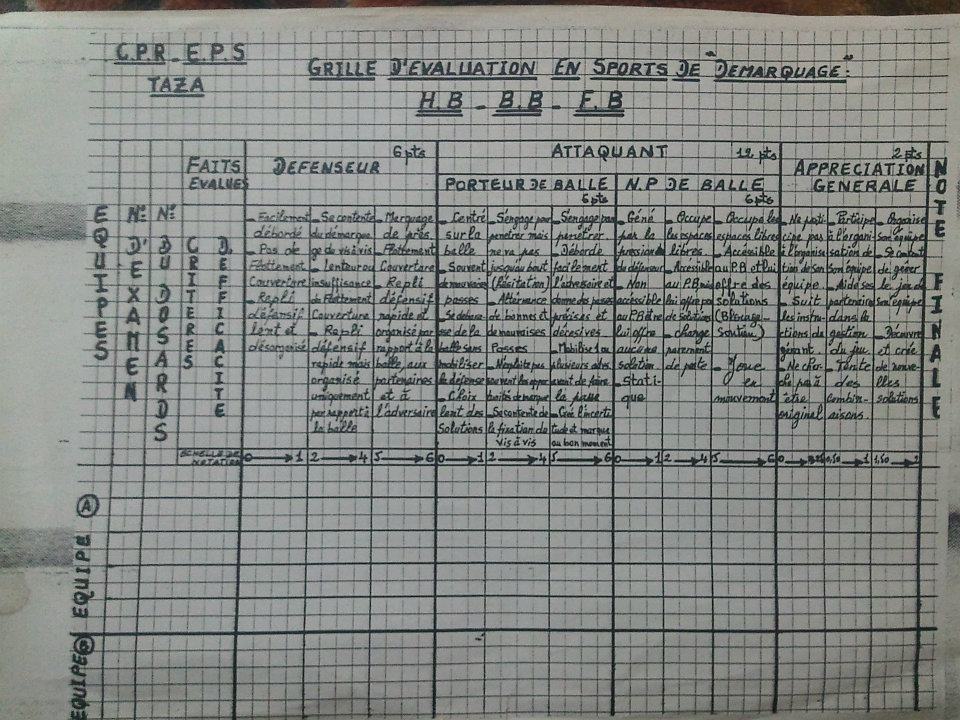 C.P.R - E.P.S
TAZA
GRILLE D'EVALUATION EN SPORTS DE "DEMARQUAGE":
H.B - B.B - F.B
EQUIPES
N: D'EXAMEN
N: DU DOSSARDS
FAITS
EVALUES
CRITERES
D. EFFICACITE
ECHELLE DE
NOTATION
DEFENSEUR 6 pts
- Facilement
débordé
- Pas de
Flottement
Couverture
- Repli
défensif
lent et
désorganisé
0 → 1
- Se contente
du démarqua
ge de vis à vis
- Lenteur ou
insuffisance
de Flottement
Couverture
- Repli
défensif
rapide mais
organisé
uniquement
par rapport à
la balle
2 → 4
- Marquage
de près.
Flottement
Couverture
- Repli
défensif
rapide et
organisé par
rapport à la
balle, aux
partenaires
et à
l'adversaire
5 → 6
ATTAQUANT 12 pts
PORTEUR DE BALLE
6 pts
- Centré
sur la
balle
- Souvent
de mauvaises
passes
- Se débarra
sse de la
balle sans
mobiliser
la défense
- Choix
lent des
Solutions
0 → 1
- S'engage pour
penetrer mais
ne va pas
jusqu'au bout
(Hésitation)
- Alternance
de bonnes et
de mauvaises
Passes
- N'exploite pas
souvent les oppor
tunités de marque
- Se contente de
la fixation du
vis à vis
2 → 4
- S'engage pour
penetrer.
- Déborde
facilement
l'adversaire et
donne des passes
précises et
décesives.
- Mobilise 1 ou
plusieurs adver.
avant de faire
la passe
- Crée l'incerti
tude et marque
au bon moment
5 → 6
N.P DE BALLE
6 pts
- Géné
par la
pression
du défenseur
- Non
accessible
au P.B et ne
lui offre
aucune
solution.
- Stati-
que
0 → 1
- Occupe
les espaces
libres.
- Accessible
au P.B mais
lui offre peu
de solutions
- change
rarement
de poste
2 → 4
- Occupe les
espaces libres
- Accessible
au P.B et lui
offre des
solutions
(Blocage -
Soutien)
- Joue
en
mouvement
5 → 6
APPRECIATION 2 pts
GENERALE
- Ne parti
cipe pas à
l'organisa
tion de son
équipe
- Suit
les instru
ctions du
gérant.
- Ne cher-
che pas à
être
original
0 →
- Participe
à l'organi-
sation de
son équipe
- Aide ses
partenaires
dans la
gestion
du jeu
- Tente
des
combin-
aisons.
0,50 → 1
- Organise
son équipe
- Se content
de gérer
le jeu de
son équipe
- Découvre
et crée
de nouve-
lles
solutions
1,50 → 2
NOTE FINALE
EQUIPE A
EQUIPE B